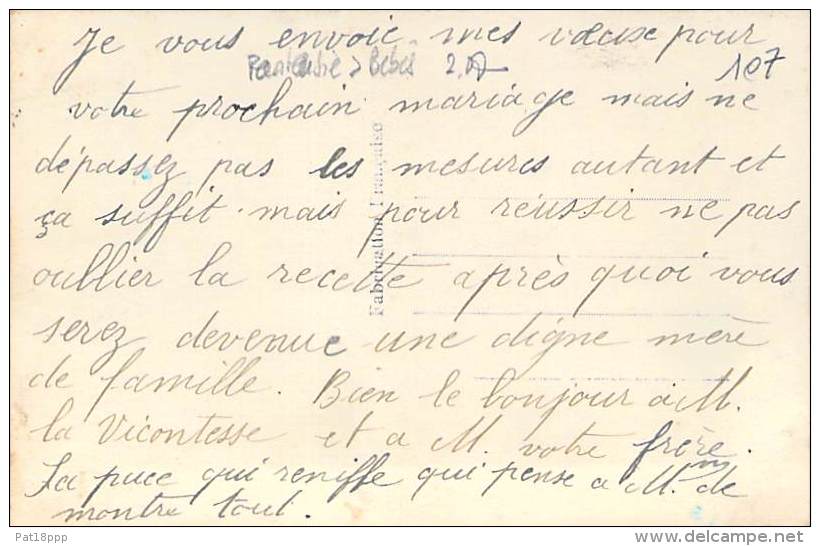 Je vous envoie mes vœux pour
Fantaisie > Bébés 2,00
107
votre prochain mariage mais ne
dépassez pas les mesures autant et
ça suffit. mais pour réussir ne pas
oublier la recette après quoi vous
serez devenue une digne mère
de famille. Bien le bonjour a M.
la Vicontesse et a M. votre frère.
La puce qui reniffle qui pense a M. de
montre tout.
Fabrication Française
Pat18ppp
www.delcampe.net